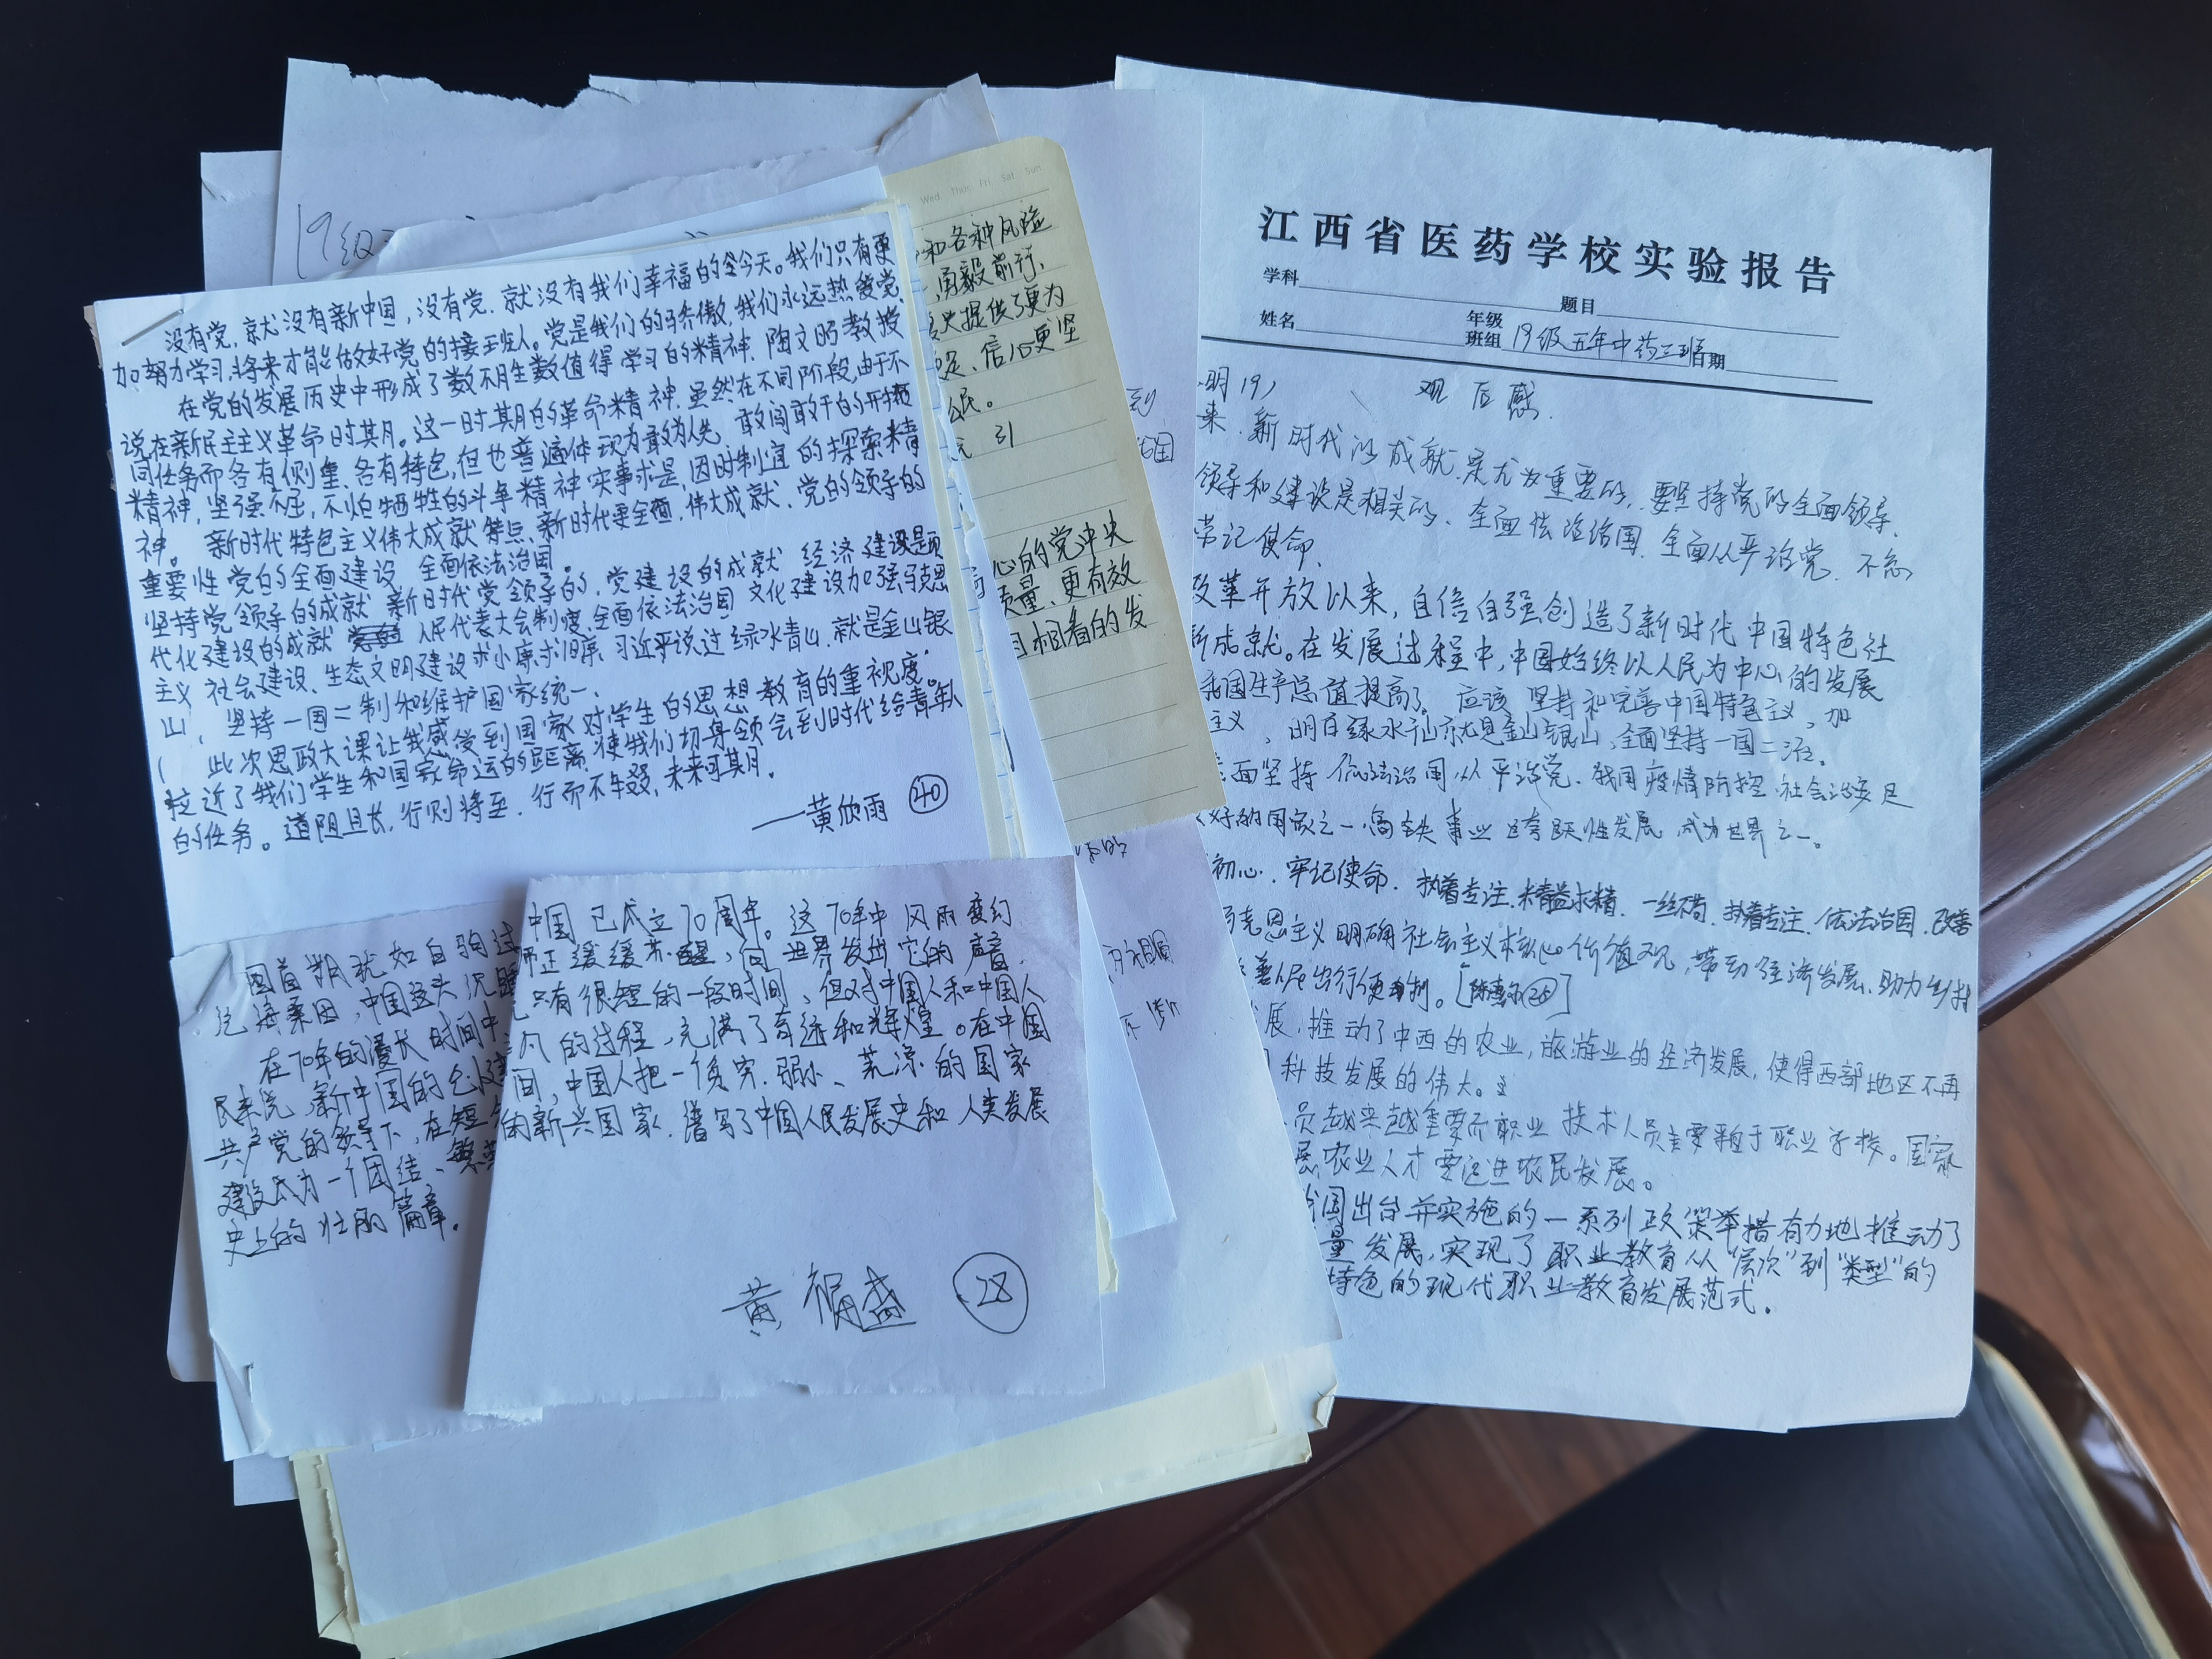 19级
没有党,就没有新中国,没有党,就没有我们幸福的今天。我们只有更
加努力学习,将来才能做好党的接班人。党是我们的骄傲,我们永远热爱党.
在党的发展历史中形成了数不胜数值得学习的精神.陶文昭教授
说在新民主主义革命时期。这一时期的革命精神.虽然在不同阶段,由于不
同任务而各有侧重.各有特色,但也普遍体现为敢为人先 敢闯敢干的开拓
精神,坚强不屈,不怕牺牲的斗争精神实事求是,因时制宜的探索精
神。 新时代特色主义伟大成就 特点、新时代要全面,伟大成就.党的领导的
重要性 党的全面建设 全面依法治国。
坚持党领导的成就 新时代党领导的,党建设的成就 经济建设是题
代化建设的成就 人民代表大会制度,全面依法治国 文化建设加强马克思
主义 社会建设、生态文明建设 习近平说过绿水青山,就是金山银
山, 坚持一国二制和维护国家统一.
( 此次思政大课让我感受到国家对学生的思想教育的重视度。
拉近了我们学生和国家命运的距离,使我们切身领会到时代给青年人
的任务。道阻且长,行则将至.行而不辍,未来可期.
——黄欣雨 40
Wed Thur Fri Sat Sun
和各种风险
,勇毅前行、
提供了更为
定、信心更坚
民。
引
心的党中央
质量、更有效
相看的发
国首期犹如白驹过
沧海桑田,中国这头沉睡
在70年的漫长时间中
民来说,新中国的创建
共产党的领导下,在短
建设成为一个团结、繁
史上的壮丽篇章.
中国已成立70周年。这70年中风雨变幻
正缓缓苏醒,向世界发出它的声音.
只有很短的一段时间,但对中国人和中国人
的过程,充满了奇迹和辉煌。在中国
间,中国人把一个贫穷.弱小、荒凉的国家
的新兴国家.谱写了中国人民发展史和人类发展
黄福盛 28
江西省医药学校实验报告
学科 题目
姓名 年级班组 19级五年中药三班 日期
明19) 观后感.
来.新时代以成就.是尤为重要的,要坚持党的全面领导.
领导和建设是相关的、全面依法治国.全面从严治党.不忘
牢记使命.
改革开放以来,自信自强创造了新时代中国特色社
新成就。在发展过程中,中国始终以人民为中心的发展
我国生产总值提高了。应该坚持和完善中国特色主义,加
主义,明白绿水青山就是金山银山,全面坚持一国二
面坚持依法治国从严治党.我国疫情防控.社会治安是
好的国家之一.高铁事业跨跃性发展 成为世界之一。
初心.牢记使命.执着专注.精益求精.一丝不苟.执着专注.依法治国.改善
克思主义明确社会主义核心价值观,带动经济发展.助力乡村
善人民出行便利。
展,推动了中西的农业,旅游业的经济发展,使得西部地区不再
科技发展的伟大。
员越来越重要而职业技术人员主要来自于职业学校。国家
展农业人才要促进农民发展。
我国出台并实施的一系列政策举措有力地推动了
量发展,实现了职业教育从“层次”到“类型”的
特色的现代职业教育发展范式.